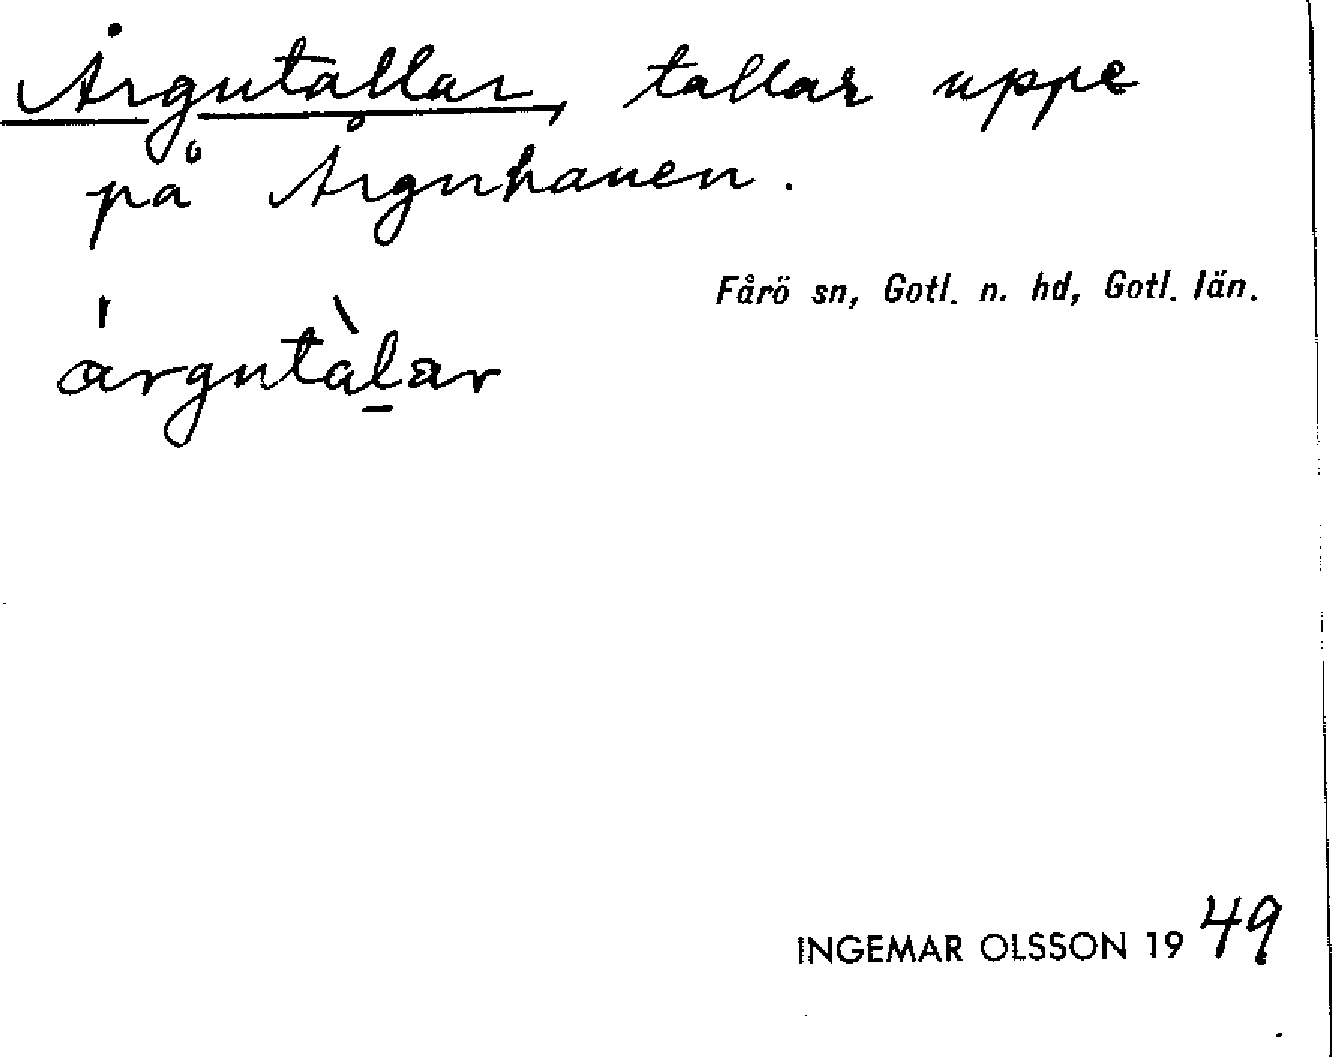 Årgutallar, tallar uppe
på Årguhauen.
Fårö sn, Gotl. n. hd, Gotl. län.
árgutàl̠ar
INGEMAR OLSSON 1949